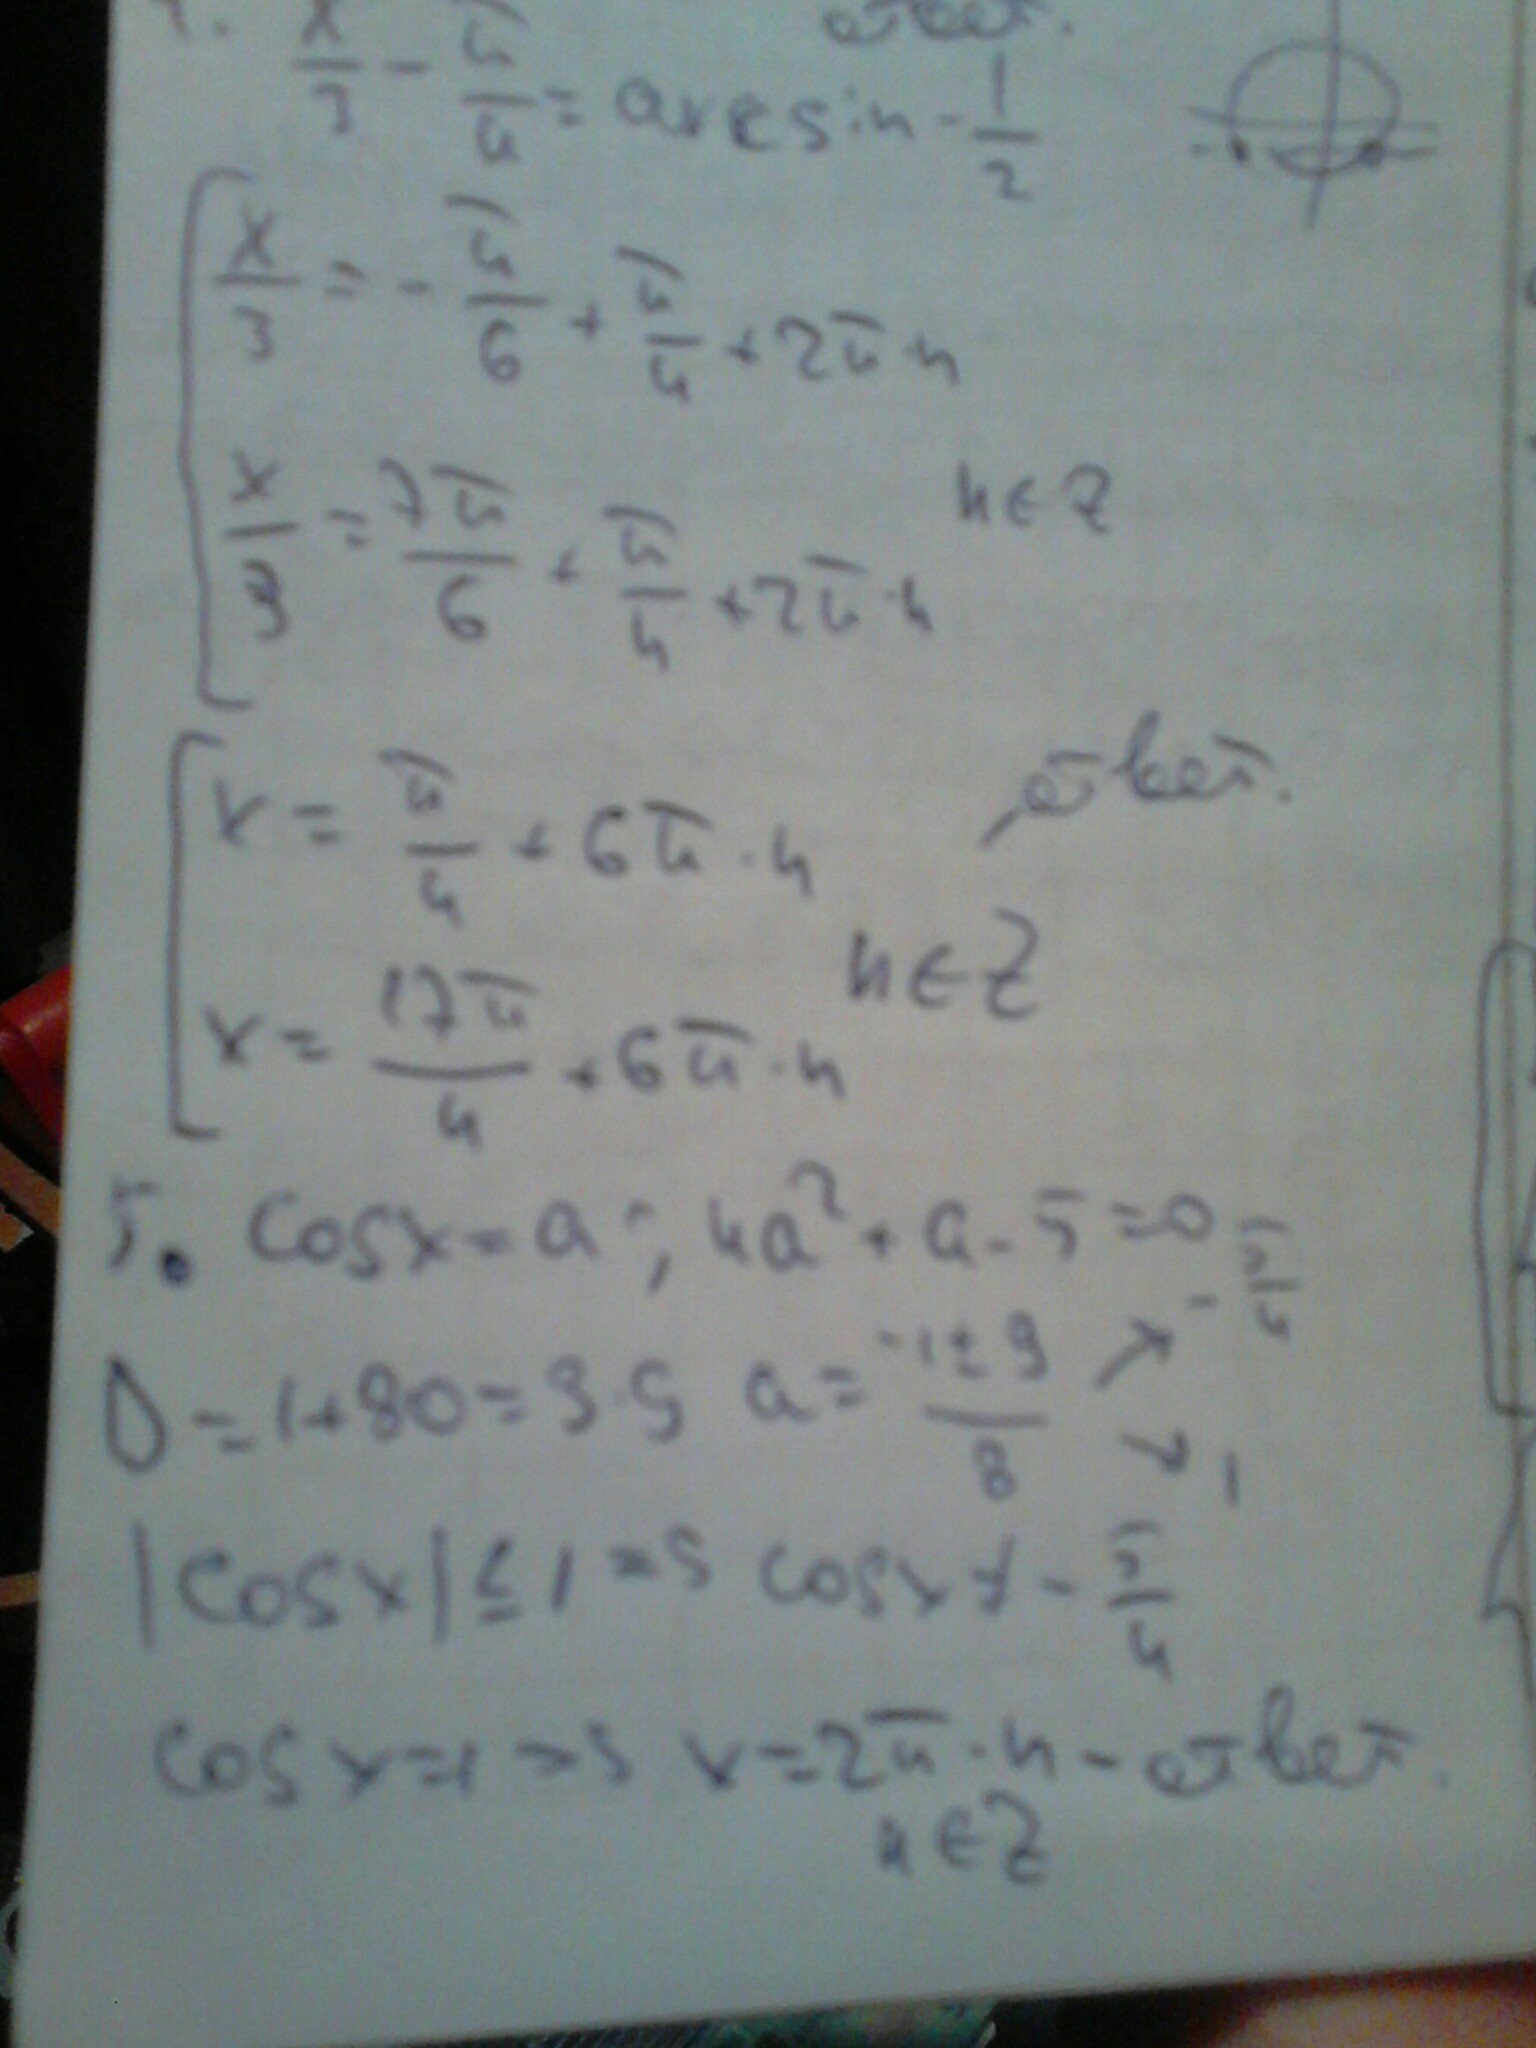 4. x/3 - π/4 = arcsin - 1/2
ответ.
x/3 = - π/6 + π/4 + 2π·n
x/3 = 7π/6 + π/4 + 2π·n
n∈Z
x = π/4 + 6π·n
ответ.
x = 17π/4 + 6π·n
n∈Z
5. cosx = a; 4a² + a - 5 = 0
D = 1+80 = 9·9 a = -1±9/8 -5/4
1
|cosx| ≤ 1 => cosx ≠ - 5/4
cosx=1 => x=2π·n - ответ.
n∈Z